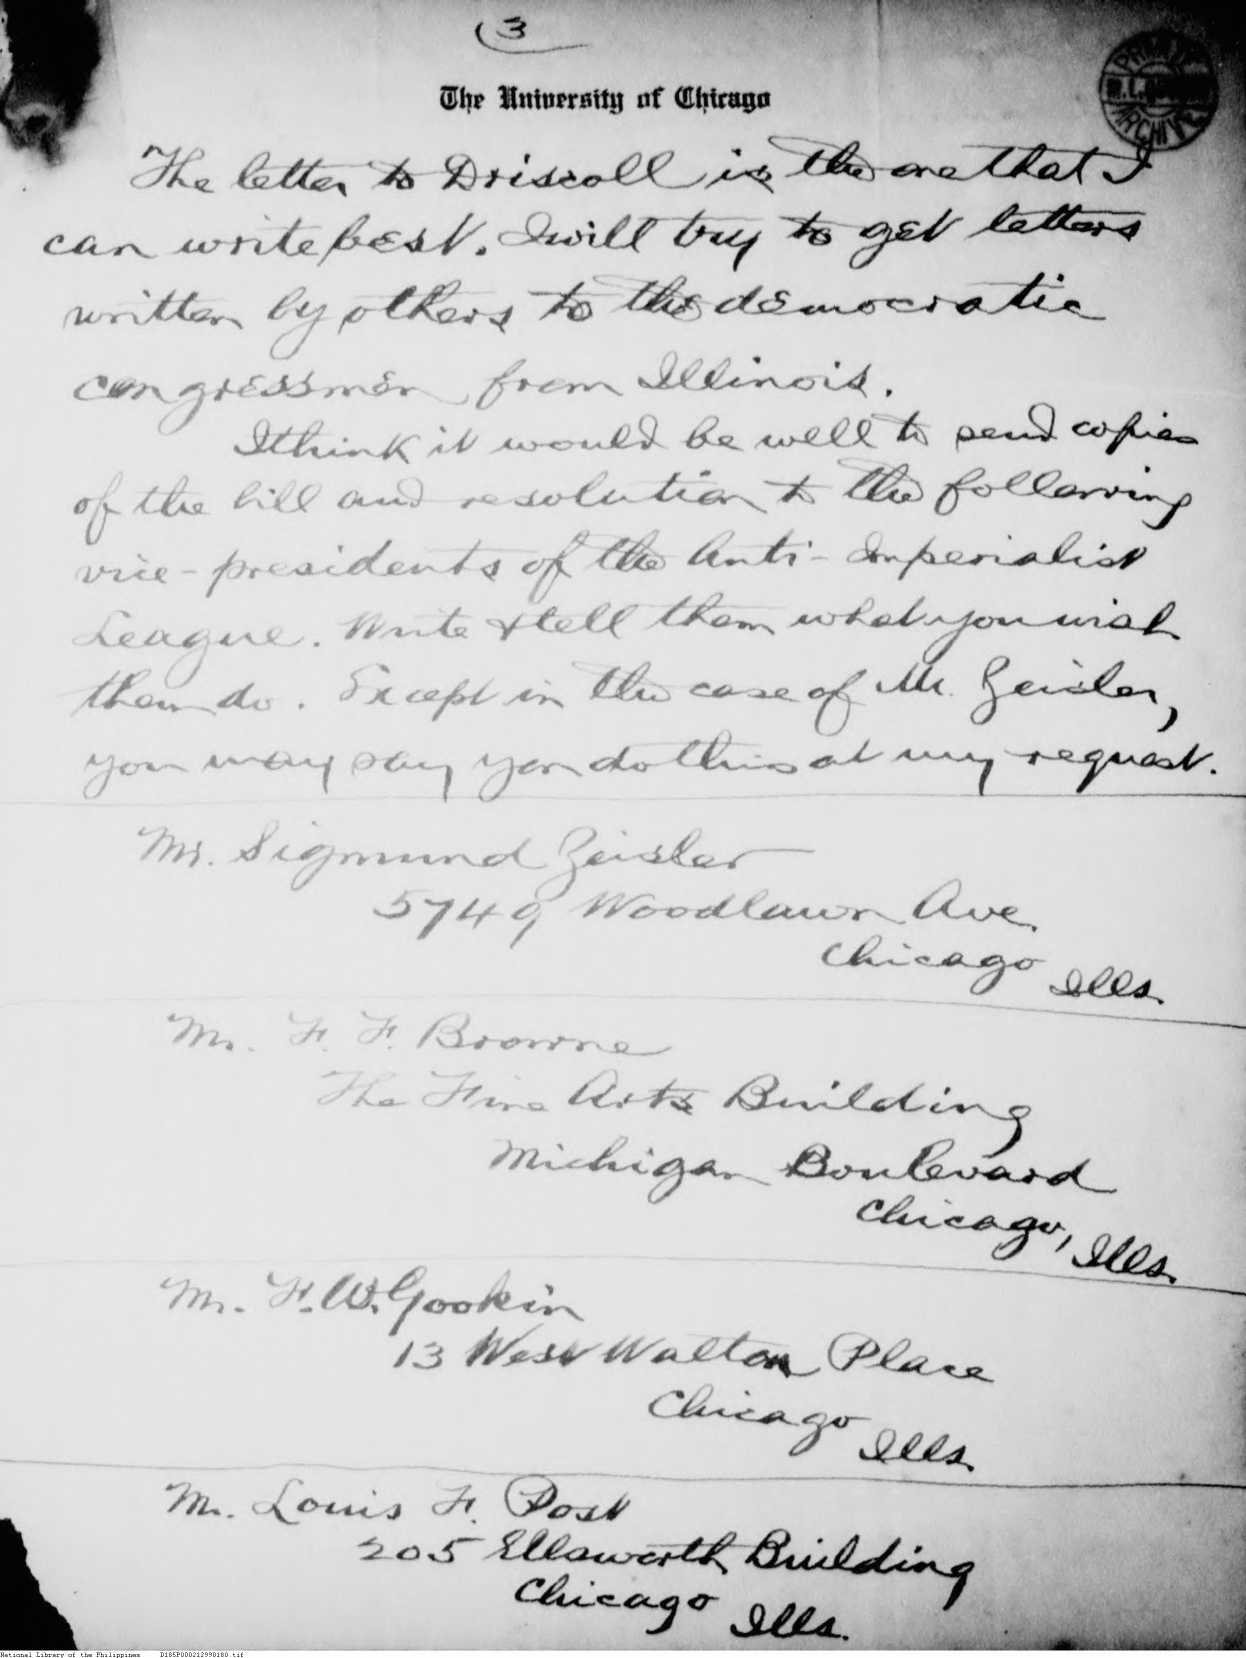 (3
The University of Chicago
The letter to Driscoll is the one that I
can write best. I will try to get letters
written by others to the democratic
congressmen from Illinois.
I think it would be well to send copies
of the bill and resolution to the following
vice-presidents of the Anti-Imperialist
League. Write & tell them what you wish
them do. Except in the case of Mr. Zeisler,
you may say you do this at my request.
Mr. Sigmund Zeisler
5749 Woodlawn Ave.
Chicago
Ills.
Mr. F. F. Browne
The Fine Arts Building
Michigan Boulevard
Chicago,
Ills.
Mr. F. W. Gookin
13 West Walton Place
Chicago
Ills.
Mr. Louis F. Post
205 Ellsworth Building
Chicago
Ills.
National Library of the Philippines D185P000212998180.tif